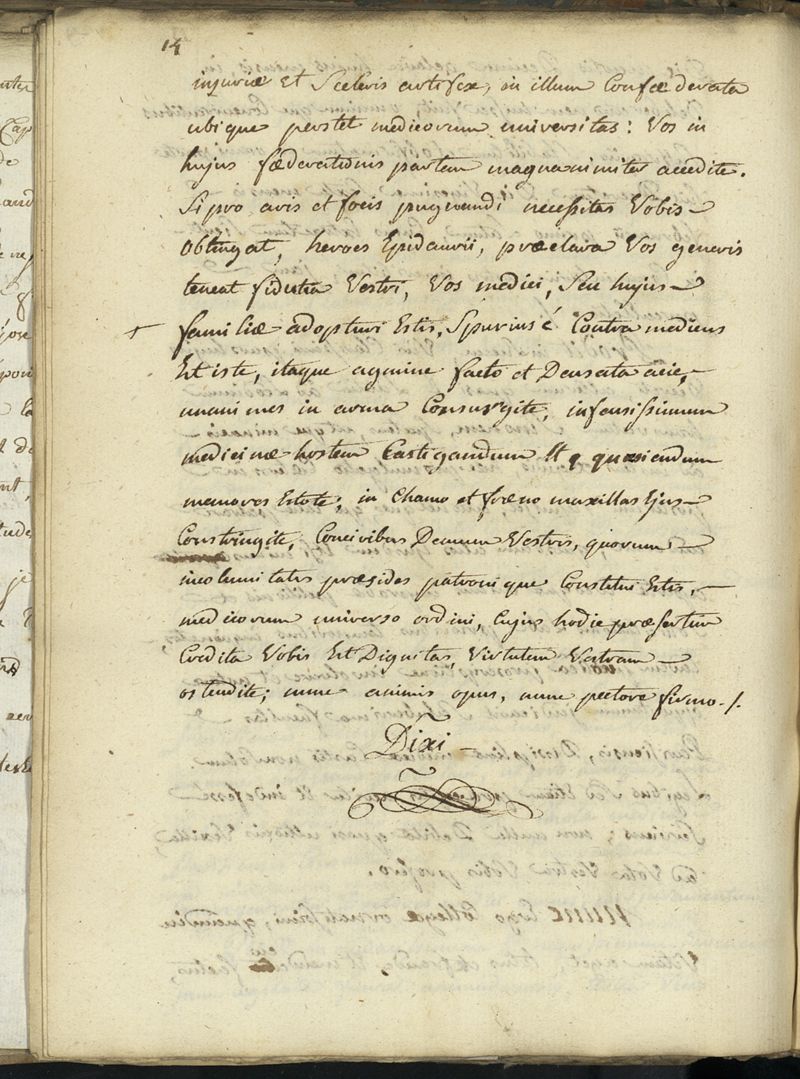 14
injuriæ et Sceleris artifex, in illum Confæderata
ubique perstet medicorum universitas: Vos in
hujus fæderationis partem magnanimiter accedite.
Si pro aris et focis pugnandi necessitas Vobis
obtingat, heroes Epidaurii, præclara Vos generis
teneat fiducia Vestri, Vos medici, Seu hujus
familiæ adoptivi Estis, Spurius é Contra medicus
Est iste, itaque agmine facto et Densata acie,
unanimes in arma Consurgite, infensissimum
medicinæ hostem Castigandum
memores Estote; in Chamo et fræno maxillas Ejus
Constringite, Concivibus Demum Vestris, quorum
incolumitatis præsides patronique Constituti Estis,
medicorum universo ordini, Cujus hodie præsertim
Credita Vobis Est Dignitas, Virtutem Vestram
ostendite; nunc animis opus, nunc pectore firmo ./.
Dixi